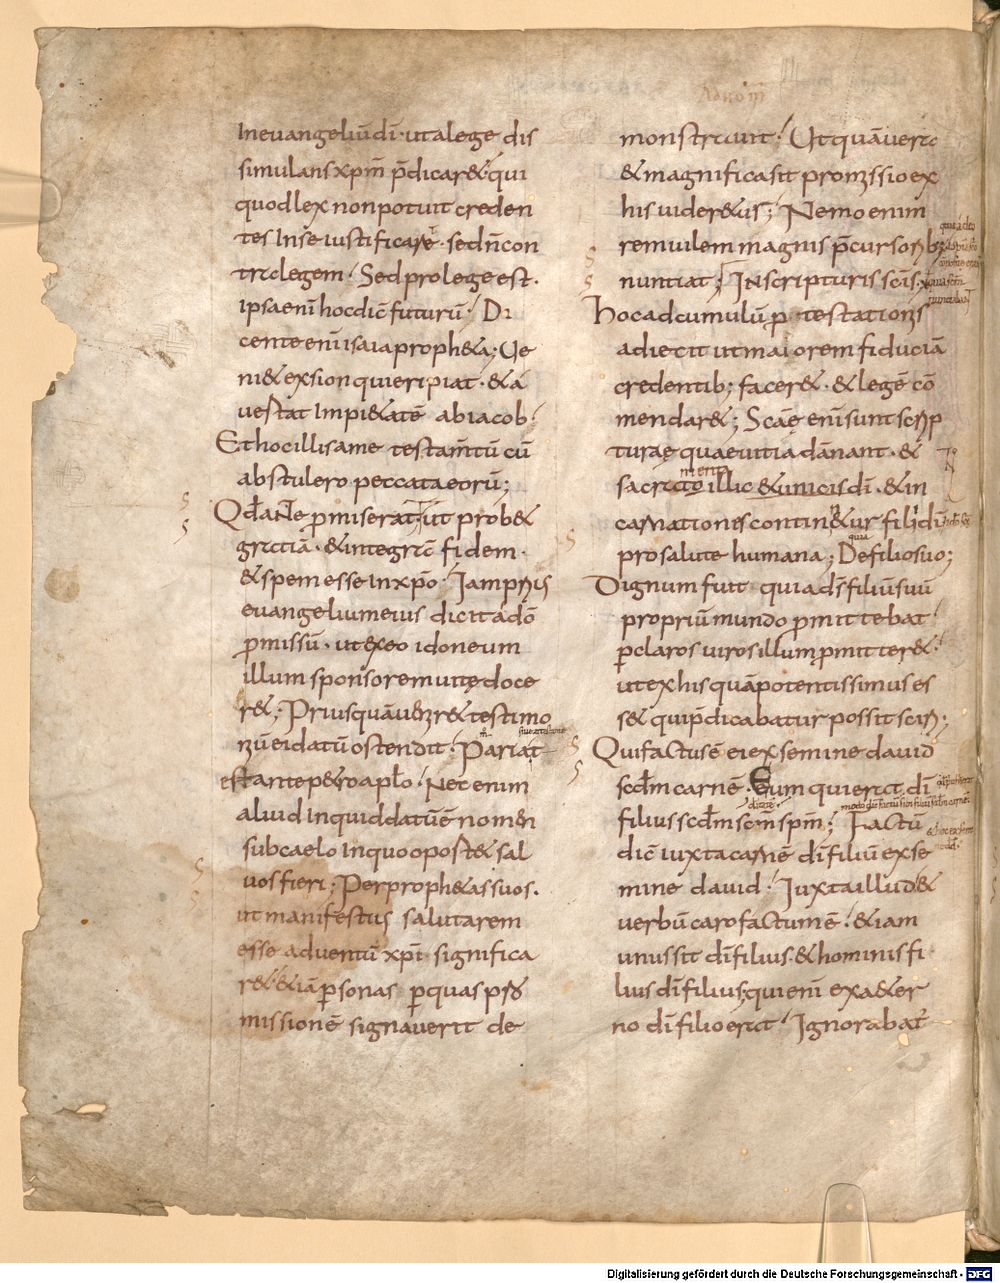 Inevangeliūdī· utalege dis
simulans xpm̄ p̄dicar&· qui
quod lex non potuit creden
tes Inse iustificare· sed n̄ con
tra legem· Sed pro lege est·
Ipsa enī hoc dic̄ futurū· Di
cente enī isaia proph&a; Ue
ni& ex sion qui eripiat· & a
vestat Impi&atē ab iacob·
Et hoc illis a me testam̄tū cū
abstulero peccata eorū;
Qd̄ ante p̄miserat; ut prob&
gratiā· & integrā fidem·
& spem esse In xp̄o· Iam prius
evangelium eius dicit ado
p̄missū· ut ex eo idoneum
illum sponsorem vitę doce
r&; Priusquā
testimo
nzū ei datū ostendit·
ante p&ro aplō· Nec enim
aliud Inquid datū ē nomen
sub caelo In quo oport& sal
vos fieri; Per proph&as suos·
ut manifestus salutarem
esse adventū xpī significa
r&· & iā p̄sonas per quas
missionē signaverit de
monstravit· Ut quā vera
& magnifica sit promissio ex
his vider&us; Nemo enim
rem vilem magnis p̄cursorib;
nuntiat; In scripturis scīs·
Hoc ad cumulū
testationis
adiecit ut maiorem fiduciā
credentib; facer&· & legē cō
mendar&; Scāę enī sunt scrip
turae quae vitia dānant· &
sacramento illic & unici dī· & in
carnationis contin&ur filii dī
pro salute humana; De filio suo;
Dignum fuit quia dš filiū suū
propriū mundo p̄mittebat·
p̄claros viros illum p̄mitter&·
ut ex his quā potentissimus es
s& qui p̄dicabatur possit sciri;
Qui factus ē ei ex semine david
scd̄m carnē· Eum qui erat dī
filius scd̄m scm̄ spm̄; Factū
dic̄ iuxta carnē dī filiū ex se
mine david· Iuxta illud &
verbū caro factum ē· & iam
unus sit dī filius· & hominis fi
lius dī filius; qui enī ex a&er
no dī filio erat· Ignorabat̄
Digitalisierung gefördert durch die Deutsche Forschungsgemeinschaft - DFG